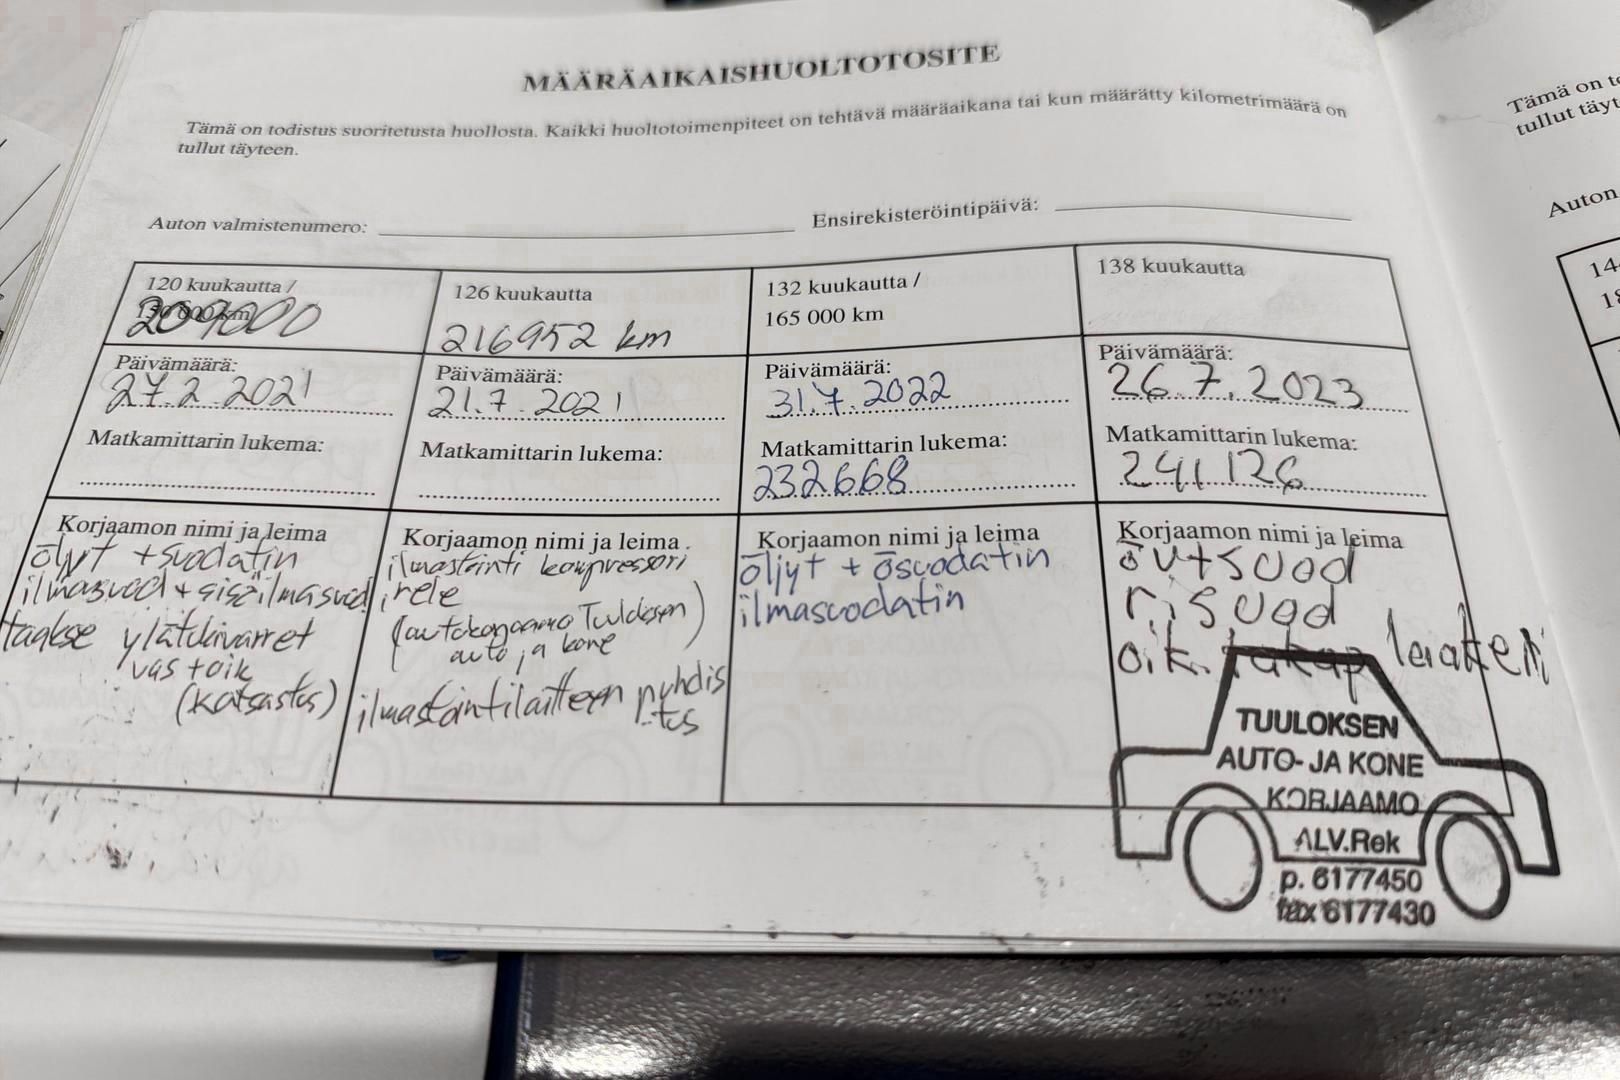 MÄÄRÄAIKAISHUOLTOTOSITE
Tämä on todistus suoritetusta huollosta. Kaikki huoltotoimenpiteet on tehtävä määräaikana tai kun määrätty kilometrimäärä on
tullut täyteen.
Auton valmistenumero:
Ensirekisteröintipäivä:
120 kuukautta /
209000
Päivämäärä:
27.2.2021
Matkamittarin lukema:
Korjaamon nimi ja leima
öljyt + suodatin
ilmasuod + sisäilmasuod
taakse ylätukivarret
vas + oik
(katsastus)
126 kuukautta
216952 km
Päivämäärä:
21.7.2021
Matkamittarin lukema:
Korjaamon nimi ja leima
ilmastointi kompressori
(autokorjaamo Tuuloksen)
auto ja kone
ilmastointilaitteen puhdis
tus
132 kuukautta /
165 000 km
Päivämäärä:
31.7.2022
Matkamittarin lukema:
232668
Korjaamon nimi ja leima
öljyt + ösuodatin
ilmasuodatin
138 kuukautta
Päivämäärä:
26.7.2023
Matkamittarin lukema:
241126
Korjaamon nimi ja leima
oik. laakeri
TUULOKSEN
AUTO- JA KONE
KORJAAMO
ALV.Rek
p. 6177450
fax 6177430
Tämä on
tullut
Auton